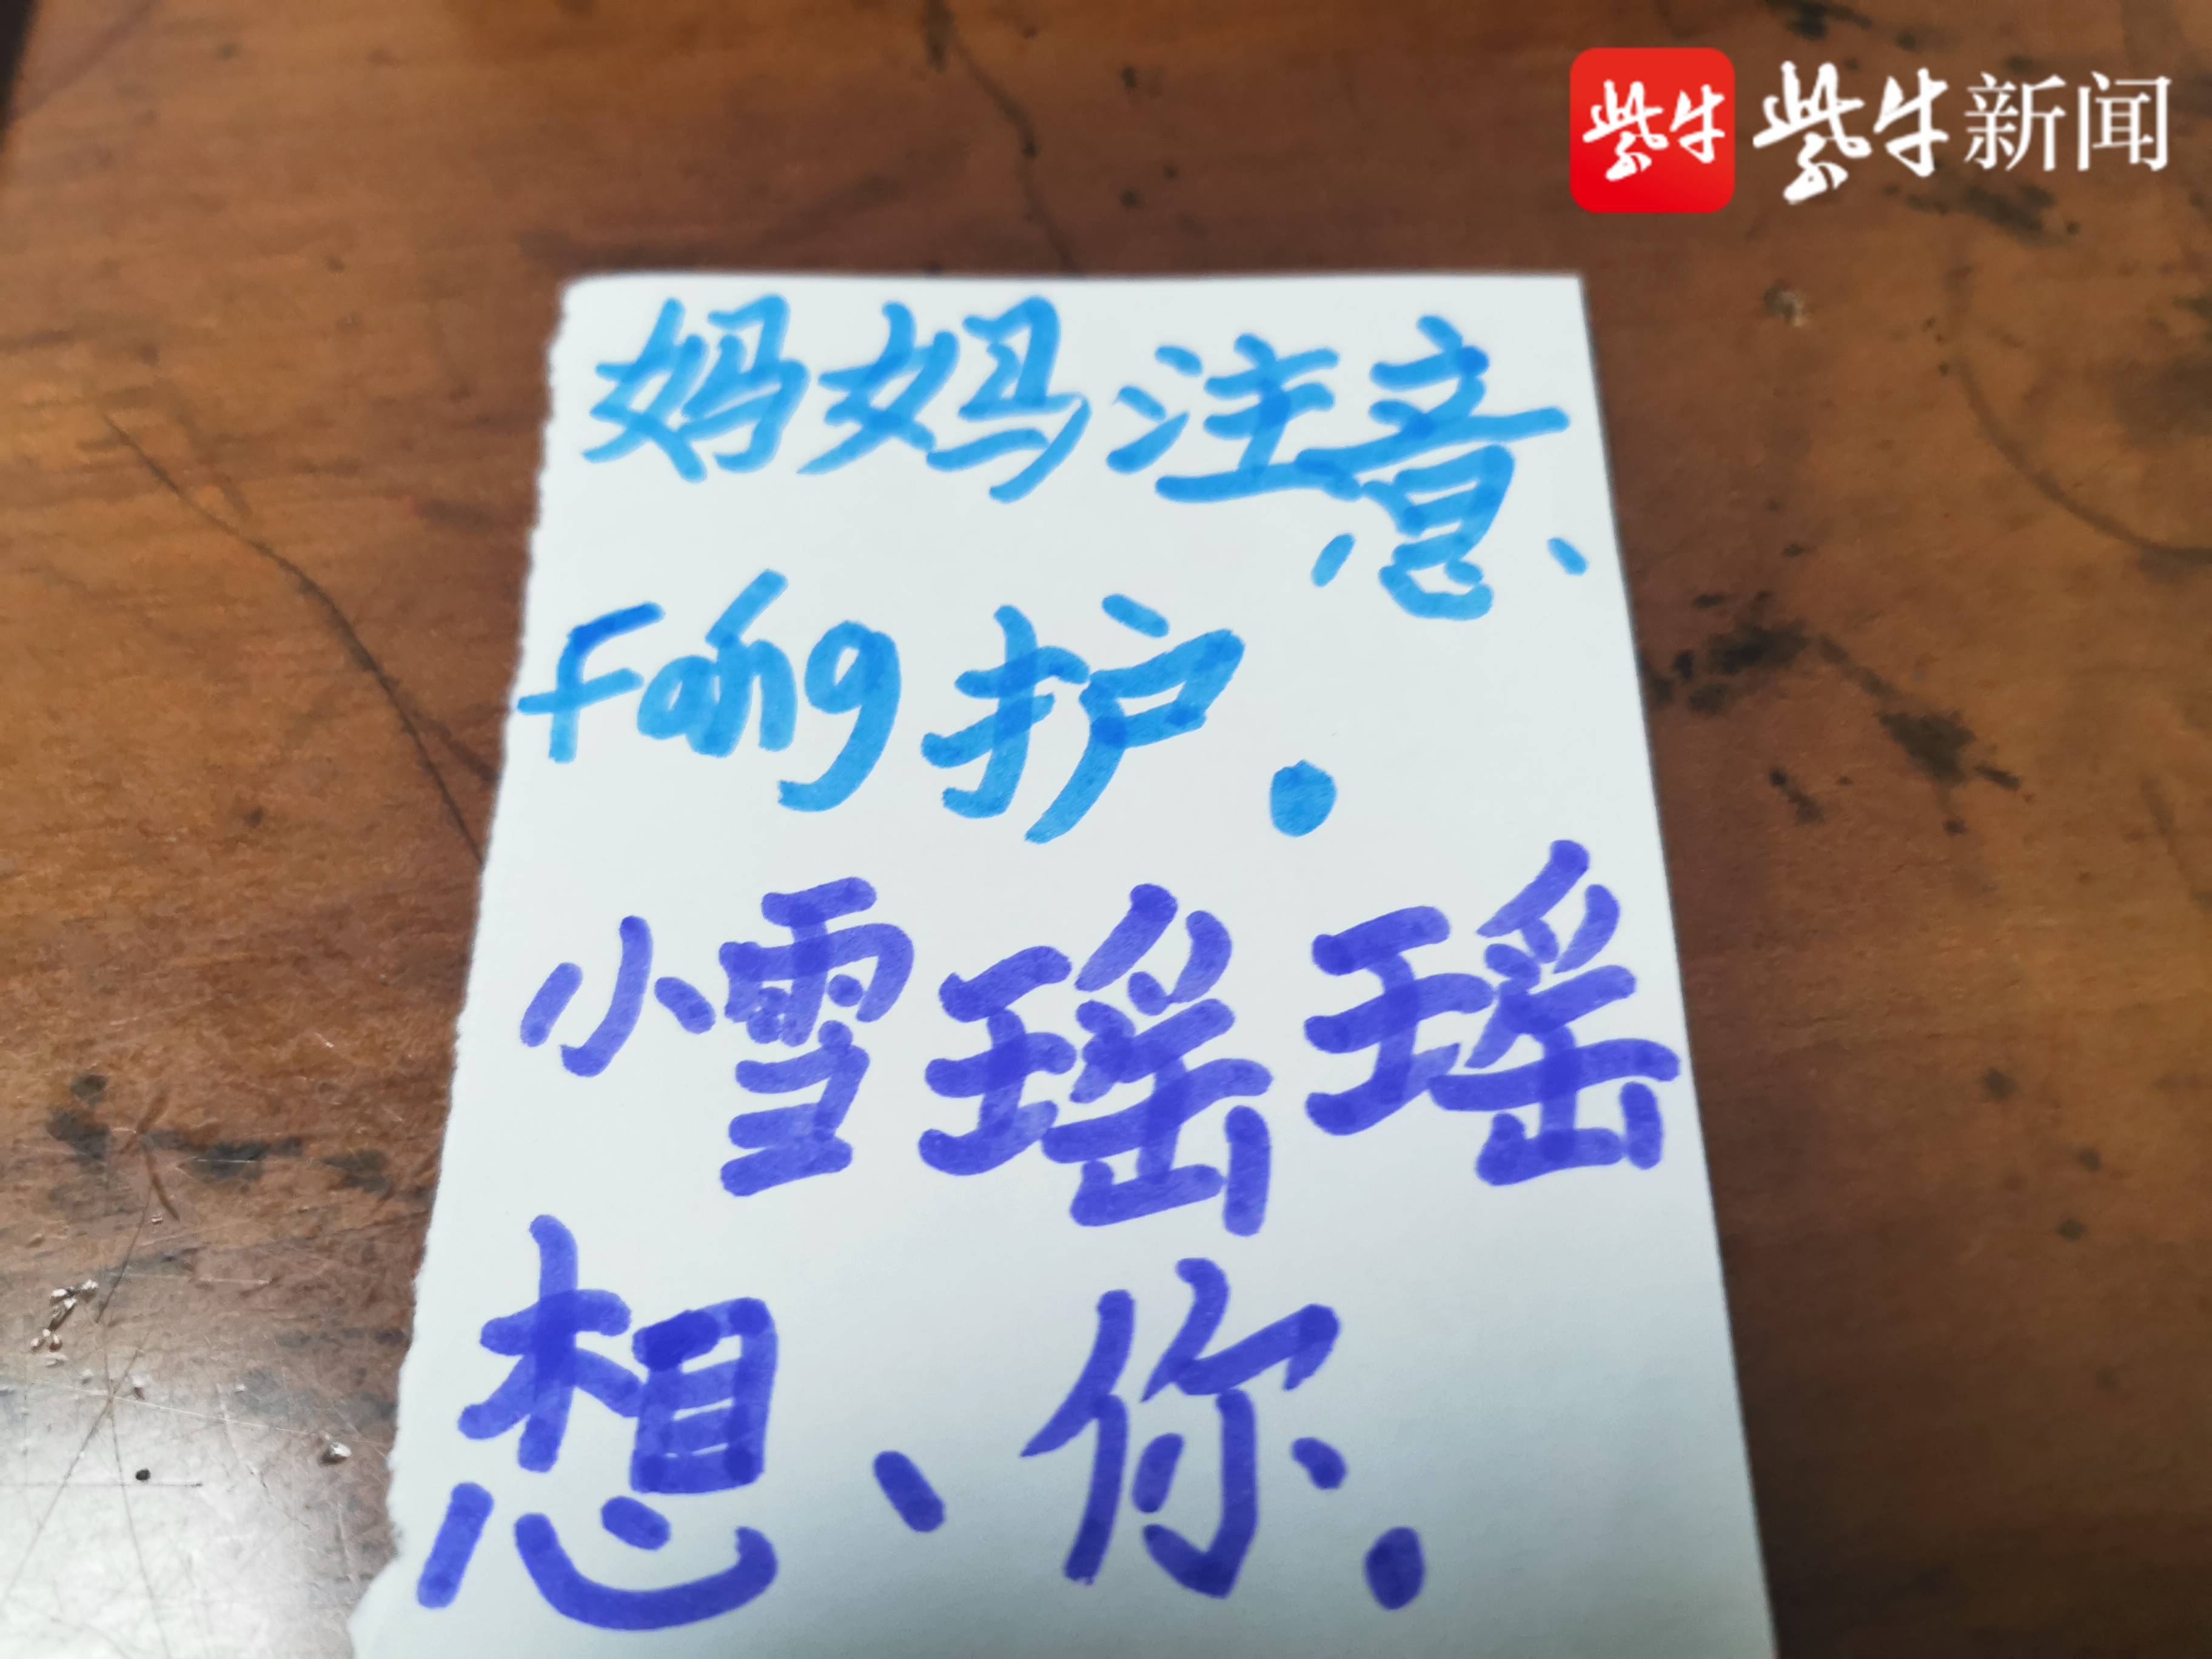 紫牛 紫牛新闻
妈妈注意
Fáng护.
小雪瑶瑶
想你.